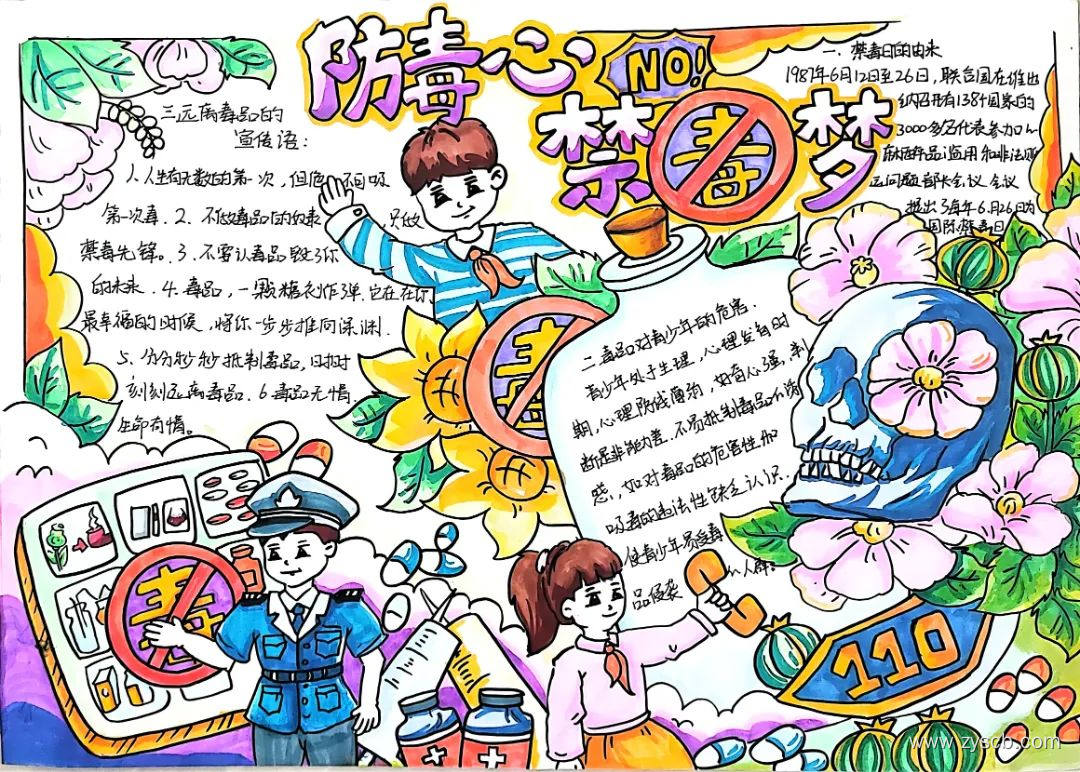 防毒心
NO!
禁毒梦
一、禁毒日的由来
1987年6月12日至26日,联合国在维也
纳召开有138个国家的
3000多名代表参加的
麻醉品滥用和非法贩
运问题部长会议 会议
提出了每年6月26为
国际禁毒日
三远离毒品的
宣传语:
1、人生有无数的第一次,但
第一次毒.2.不做毒品的 只做
禁毒先锋。3.不要认毒品 了你
的未来.4.毒品,一颗糖衣炸弹.它在在你
最幸福的时候,将你一步步推向深渊.
5、分分秒秒抵制毒品,时时
刻刻远离毒品.6毒品无情.
生命有情。
二毒品对青少年的危害.
青少年处于生理,心理发育时
期,心理防线薄弱,好奇心强,判
断是非能力差.不易抵制毒品的诱
惑,,如对毒品的危害性.和
吸毒的违法性缺乏认识.
使青少年易受毒
品侵袭 的人群。
毒
毒
110
www.zyscb.com